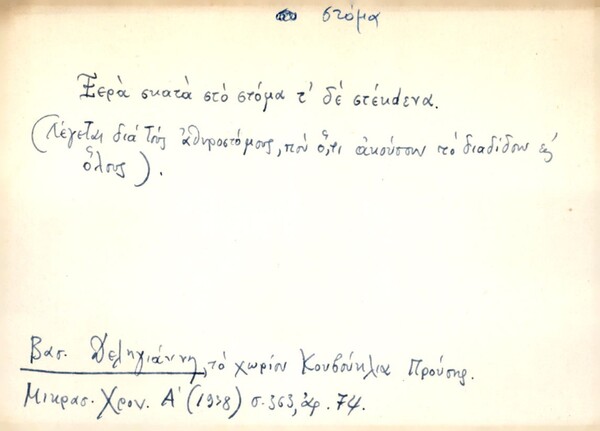 στόμα
Ξερὰ σκατὰ στὸ στόμα τ' δὲ στέκdενα.
(Λέγεται διὰ τοὺς ἀθυροστόμους, ποὺ ὅ,τι ἀκούσουν τὸ διαδίδουν εἰς
ὅλους).
Βασ. Δεληγιάννη, τὸ χωρίον Κουβούκλια Προύσης.
Μικρασ. Χρον. Α' (1938) σ. 363, ἀρ. 74.